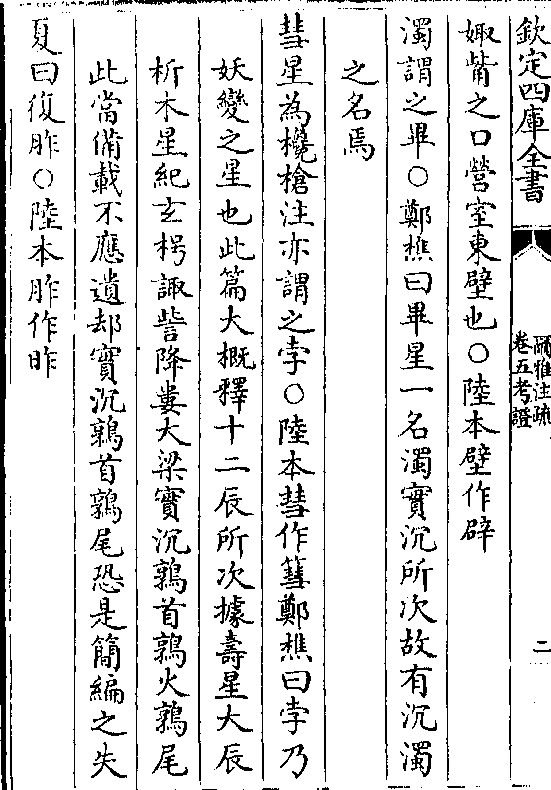 欽定四庫全書
爾雅注疏
卷五考證
二
娵觜之口營室東壁也○陸本壁作辟
濁謂之畢○鄭樵曰畢星一名濁實沉所次故有沉濁
之名焉
彗星為欃槍注亦謂之孛○陸本彗作篲鄭樵曰孛乃
妖變之星也此篇大概釋十二辰所次據壽星大辰
析木星紀玄枵諏訾降婁大梁實沉鶉首鶉火鶉尾
此當備載不應遺却實沉鶉首鶉尾恐是簡編之失
夏曰復胙○陸本胙作昨